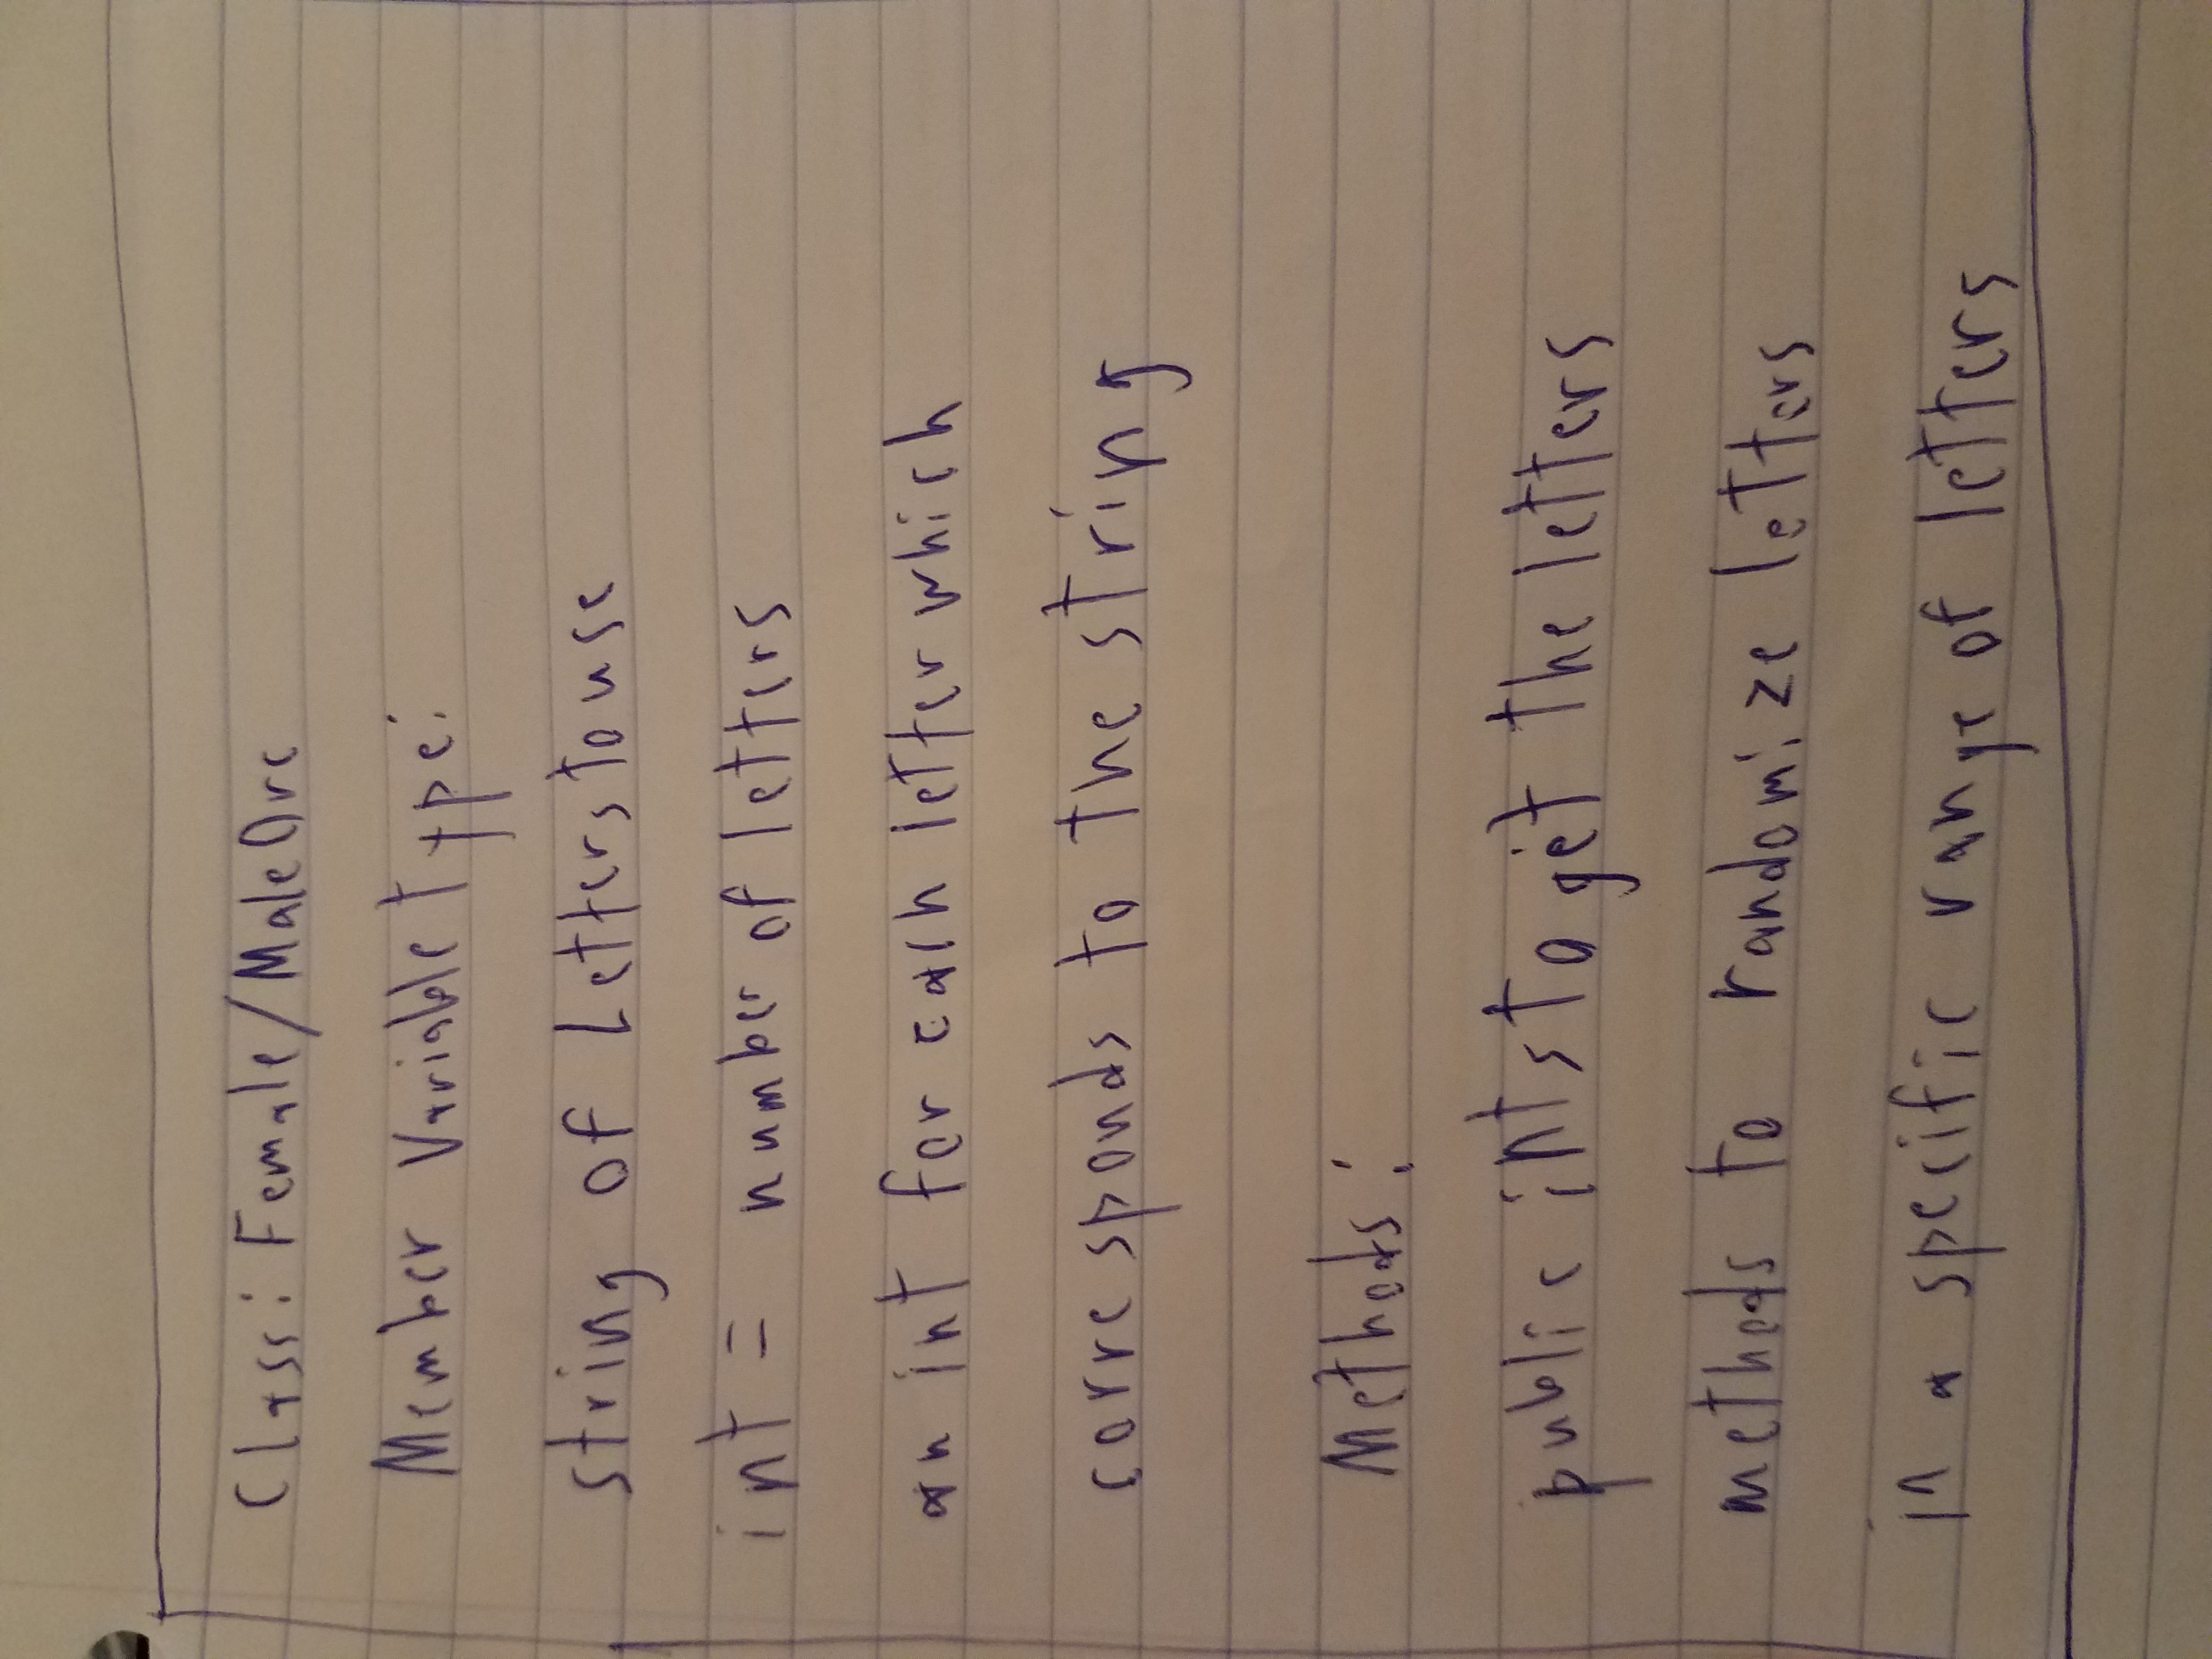 Class: Female/MaleOrc
Member Variable type:
string of Letters to use
int = number of letters
an int for each letter which
corresponds to the string
Methods:
public ints to get the letters
methods to randomize letters
in a specific range of letters